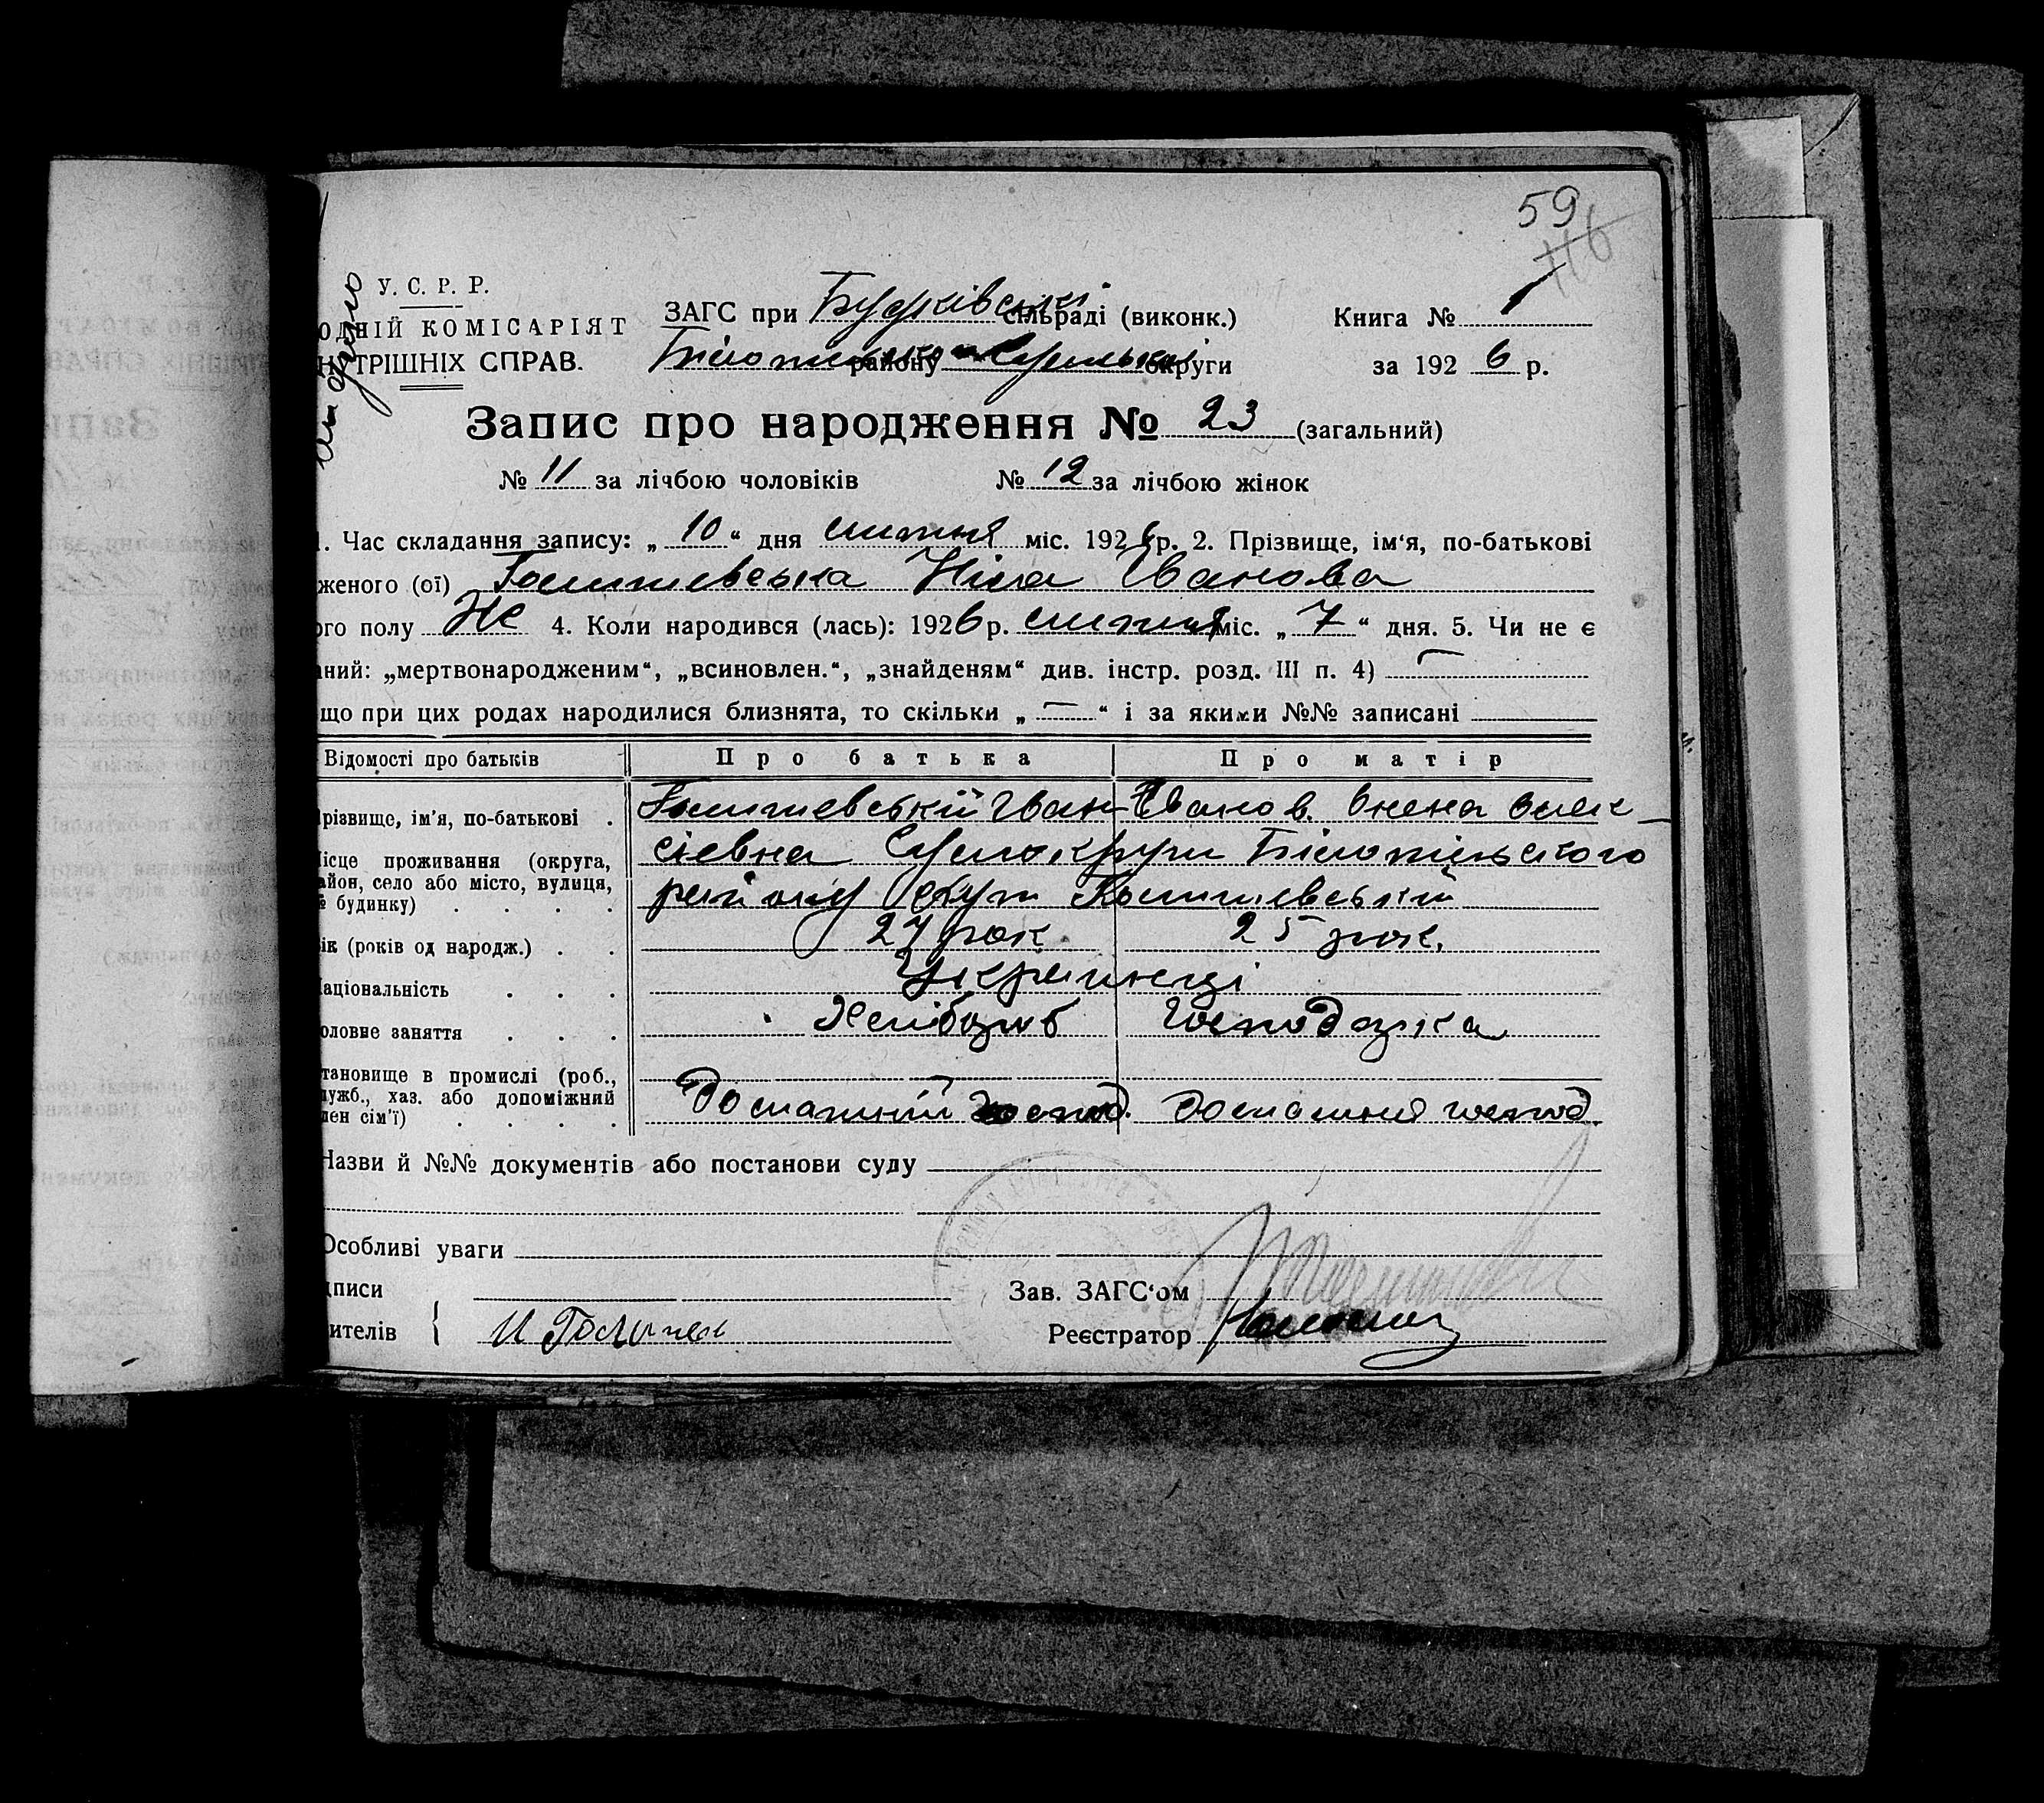 59
116
У. С. Р. Р.
ОДНІЙ КОМІСАРІЯТ
НУТРІШНІХ СПРАВ.
ЗАГС при Будківські сільраді (виконк.)
Білопільсько району Сумської округи
Книга № 1
за 192 6 р.
Запис про народження № 23 (загальний)
№ 11 за лічбою чоловіків № 12 за лічбою жінок
1. Час складання запису: „ 10 “ дня липня міс. 192 6 р. 2. Прізвище, ім‘я, по-батькові
женого (ої) Голишевська Ніна Іванова
ого полу Же 4. Коли народився (лась): 1926 р. липня міс. „ 7 “ дня. 5. Чи не є
аний: „мертвонародженим“, „всиновлен.“, „знайденям“ див. інстр. розд. III п. 4) —
що при цих родах народилися близнята, то скільки „ — “ і за якими №№ записані
Відомості про батьків Про батька Про матір
різвище, ім‘я, по-батькові . Голишевський Іван Іванов. Олена Олек
ісце проживання (округа, сієвна Сумокруги Білопільського
айон, село або місто, вулиця, району
№ будинку) . . . .
ік (років од народж.) . . 27 рок. 25 рок.
аціональність . . . Українці
оловне заняття . . . Хлібороб Господарка
тановище в промислі (роб.,
лужб., хаз. або допоміжний Домашній господ. Домашня господ
лен сім‘ї) . . . .
Назви й №№ документів або постанови суду
Особливі уваги
дписи
ителів
Зав. ЗАГС‘ом
Реєстратор